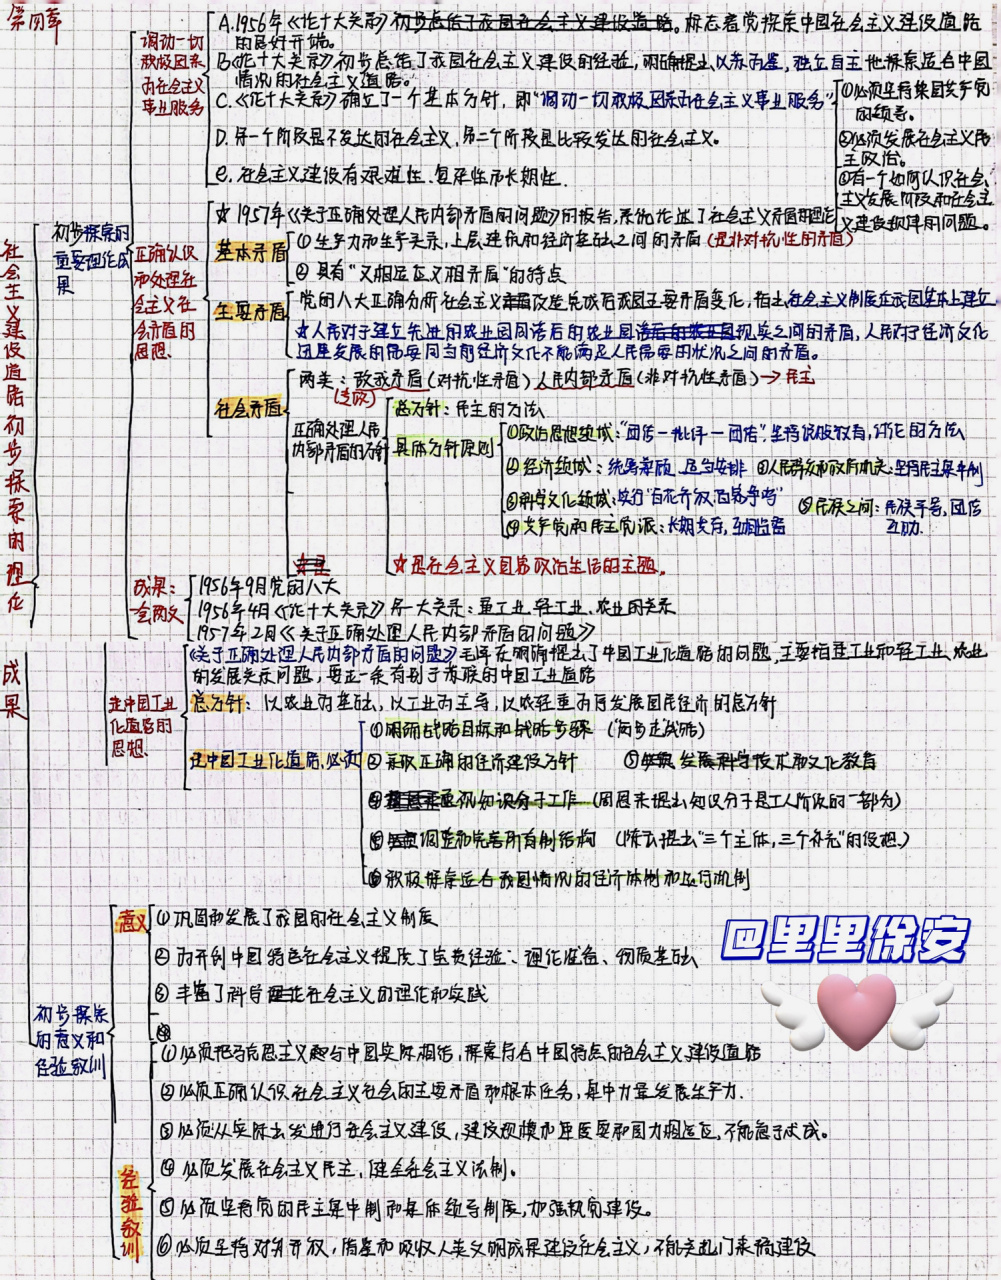 第四章
社会主义建设道路初步探索的理论成果
初步探索的重要理论成果
调动一切积极因素为社会主义事业服务
A.1956年《论十大关系》初步总结了我国社会主义建设道路。标志着党探索中国社会主义建设道路
的良好开端。
B.《论十大关系》初步总结了我国社会主义建设的经验,明确提出以苏为鉴,独立自主地探索适合中国
情况的社会主义道路。
C.《论十大关系》确立了一个基本方针,即"调动一切积极因素为社会主义事业服务"
①必须坚持中国共产党
的领导。
②必须发展社会主义民
主政治。
D.第一个阶段是不发达的社会主义,第二个阶段是比较发达的社会主义。
③有一个如何认识社会
主义发展阶段和社会主
义建设规律的问题。
e.社会主义建设有艰难性、复杂性和长期性.
正确认识和处理社会主义社会矛盾的思想.
☆1957年《关于正确处理人民内部矛盾的问题》的报告,系统论述了社会主义矛盾的理论
基本矛盾
①生产力和生产关系,上层建筑和经济基础之间的矛盾(是非对抗性的矛盾)
②具有"又相适应又相矛盾"的特点
主要矛盾
党的八大正确分析社会主义改造完成后我国主要矛盾变化,指出社会主义制度在我国基本上建立
☆人民对于建立先进的农业国同落后的农业国落后的农业国现实之间的矛盾,人民对于经济文化
迅速发展的需要同当前经济文化不能满足人民需要的状况之间的矛盾。
社会矛盾
两类:敌我矛盾(对抗性矛盾)人民内部矛盾(非对抗性矛盾)→民主
(专政)
正确处理人民
内部矛盾的方针
总方针:民主的方法
具体方针原则
①政治思想领域:"团结—批评—团结".坚持说服教育,讨论的方法
②经济领域:统筹兼顾 适当安排 ③人民群众和政府机关:坚持民主集中制
③科学文化领域:实行"百花齐放,百家争鸣"
⑤民族之间:民族平等,团结
互助.
④共产党和民主党派:长期共存,互相监督
☆是社会主义国家政治生活的主题。
成果:
一会两文
1956年9月党的八大
1956年4月《论十大关系》第一大关系:重工业、轻工业、农业的关系
1957年2月《关于正确处理人民内部矛盾的问题》
走中国工业化道路的思想.
《关于正确处理人民内部矛盾的问题》毛泽东明确提出了中国工业化道路的问题,主要指重工业和轻工业、农业
的发展关系问题,要走一条有别于苏联的中国工业道路
总方针:以农业为基础,以工业为主导,以农轻重为序发展国民经济的总方针
走中国工业化道路,必须
①明确战略目标和战略步骤(两步走战略)
②采取正确的经济建设方针
⑤发展科学技术和文化教育
③重视知识分子工作(周恩来提出知识分子是工人阶级的一部分)
④调整和完善所有制结构(陈云提出"三个主体,三个补充"的设想.)
⑥积极探索适合我国情况的经济体制和运行机制
初步探索的意义和经验教训
意义
①巩固和发展了我国的社会主义制度
②为开创中国特色社会主义提供了宝贵经验、理论准备、物质基础
③丰富了科学社会主义的理论和实践
④
经验教训
①必须把马克思主义与中国实际相结,探索符合中国特点的社会主义建设道路
②必须正确认识社会主义社会的主要矛盾和根本任务,集中力量发展生产力.
③必须从实际出发进行社会主义建设,建设规模和速度要和国力相适应,不能急于求成。
④必须发展社会主义民主,健全社会主义法制。
⑤必须坚持党的民主集中制和集体领导制度,加强执政党建设。
⑥必须坚持对外开放,借鉴和吸收人类文明成果建设社会主义,不能关起门来搞建设
@里里徐安